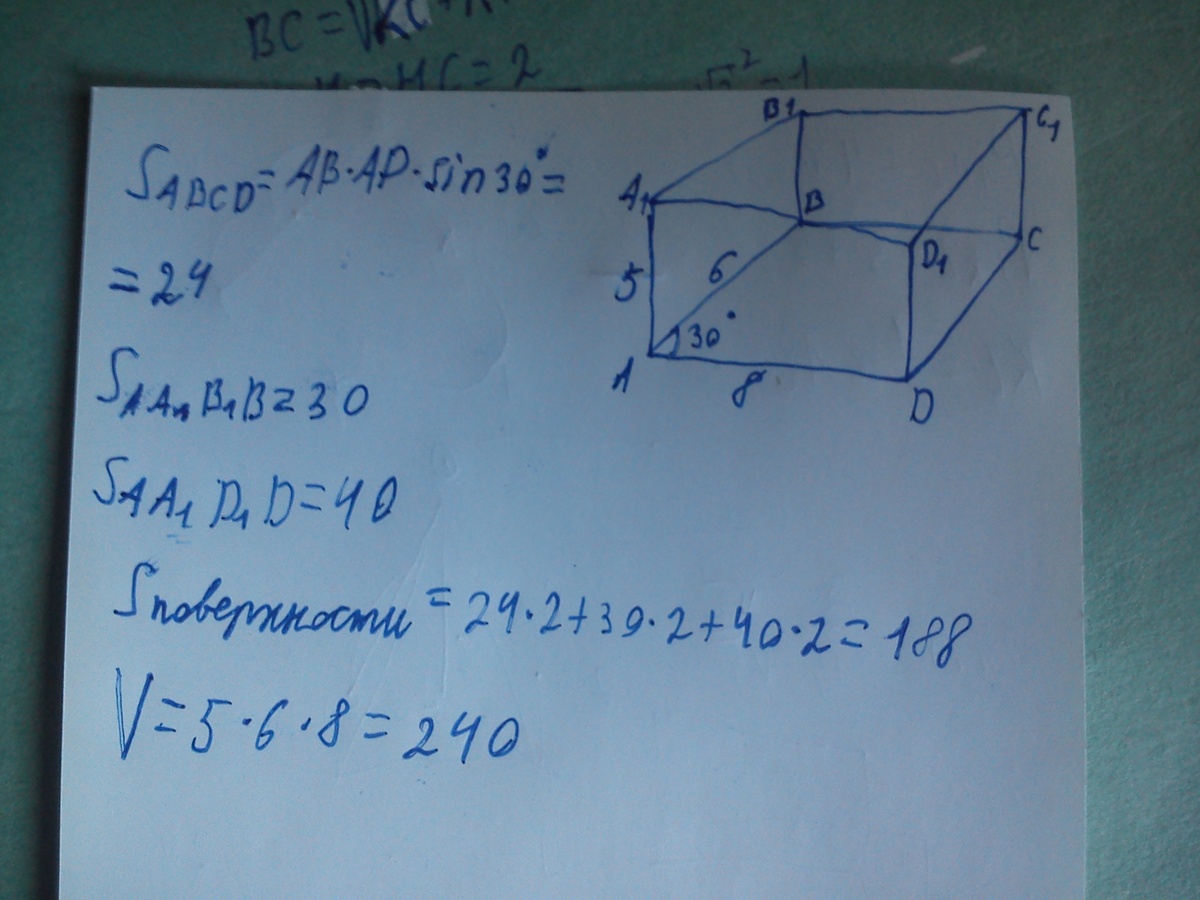 BC = √KC
HC = 2
S ABCD = AB · AD · sin 30° =
= 24
S AA₁B₁B = 30
S AA₁D₁D = 40
S поверхности = 24·2+30·2+40·2 = 188
V = 5·6·8 = 240
B1
C1
A1
B
D1
C
5
6
30°
A
8
D